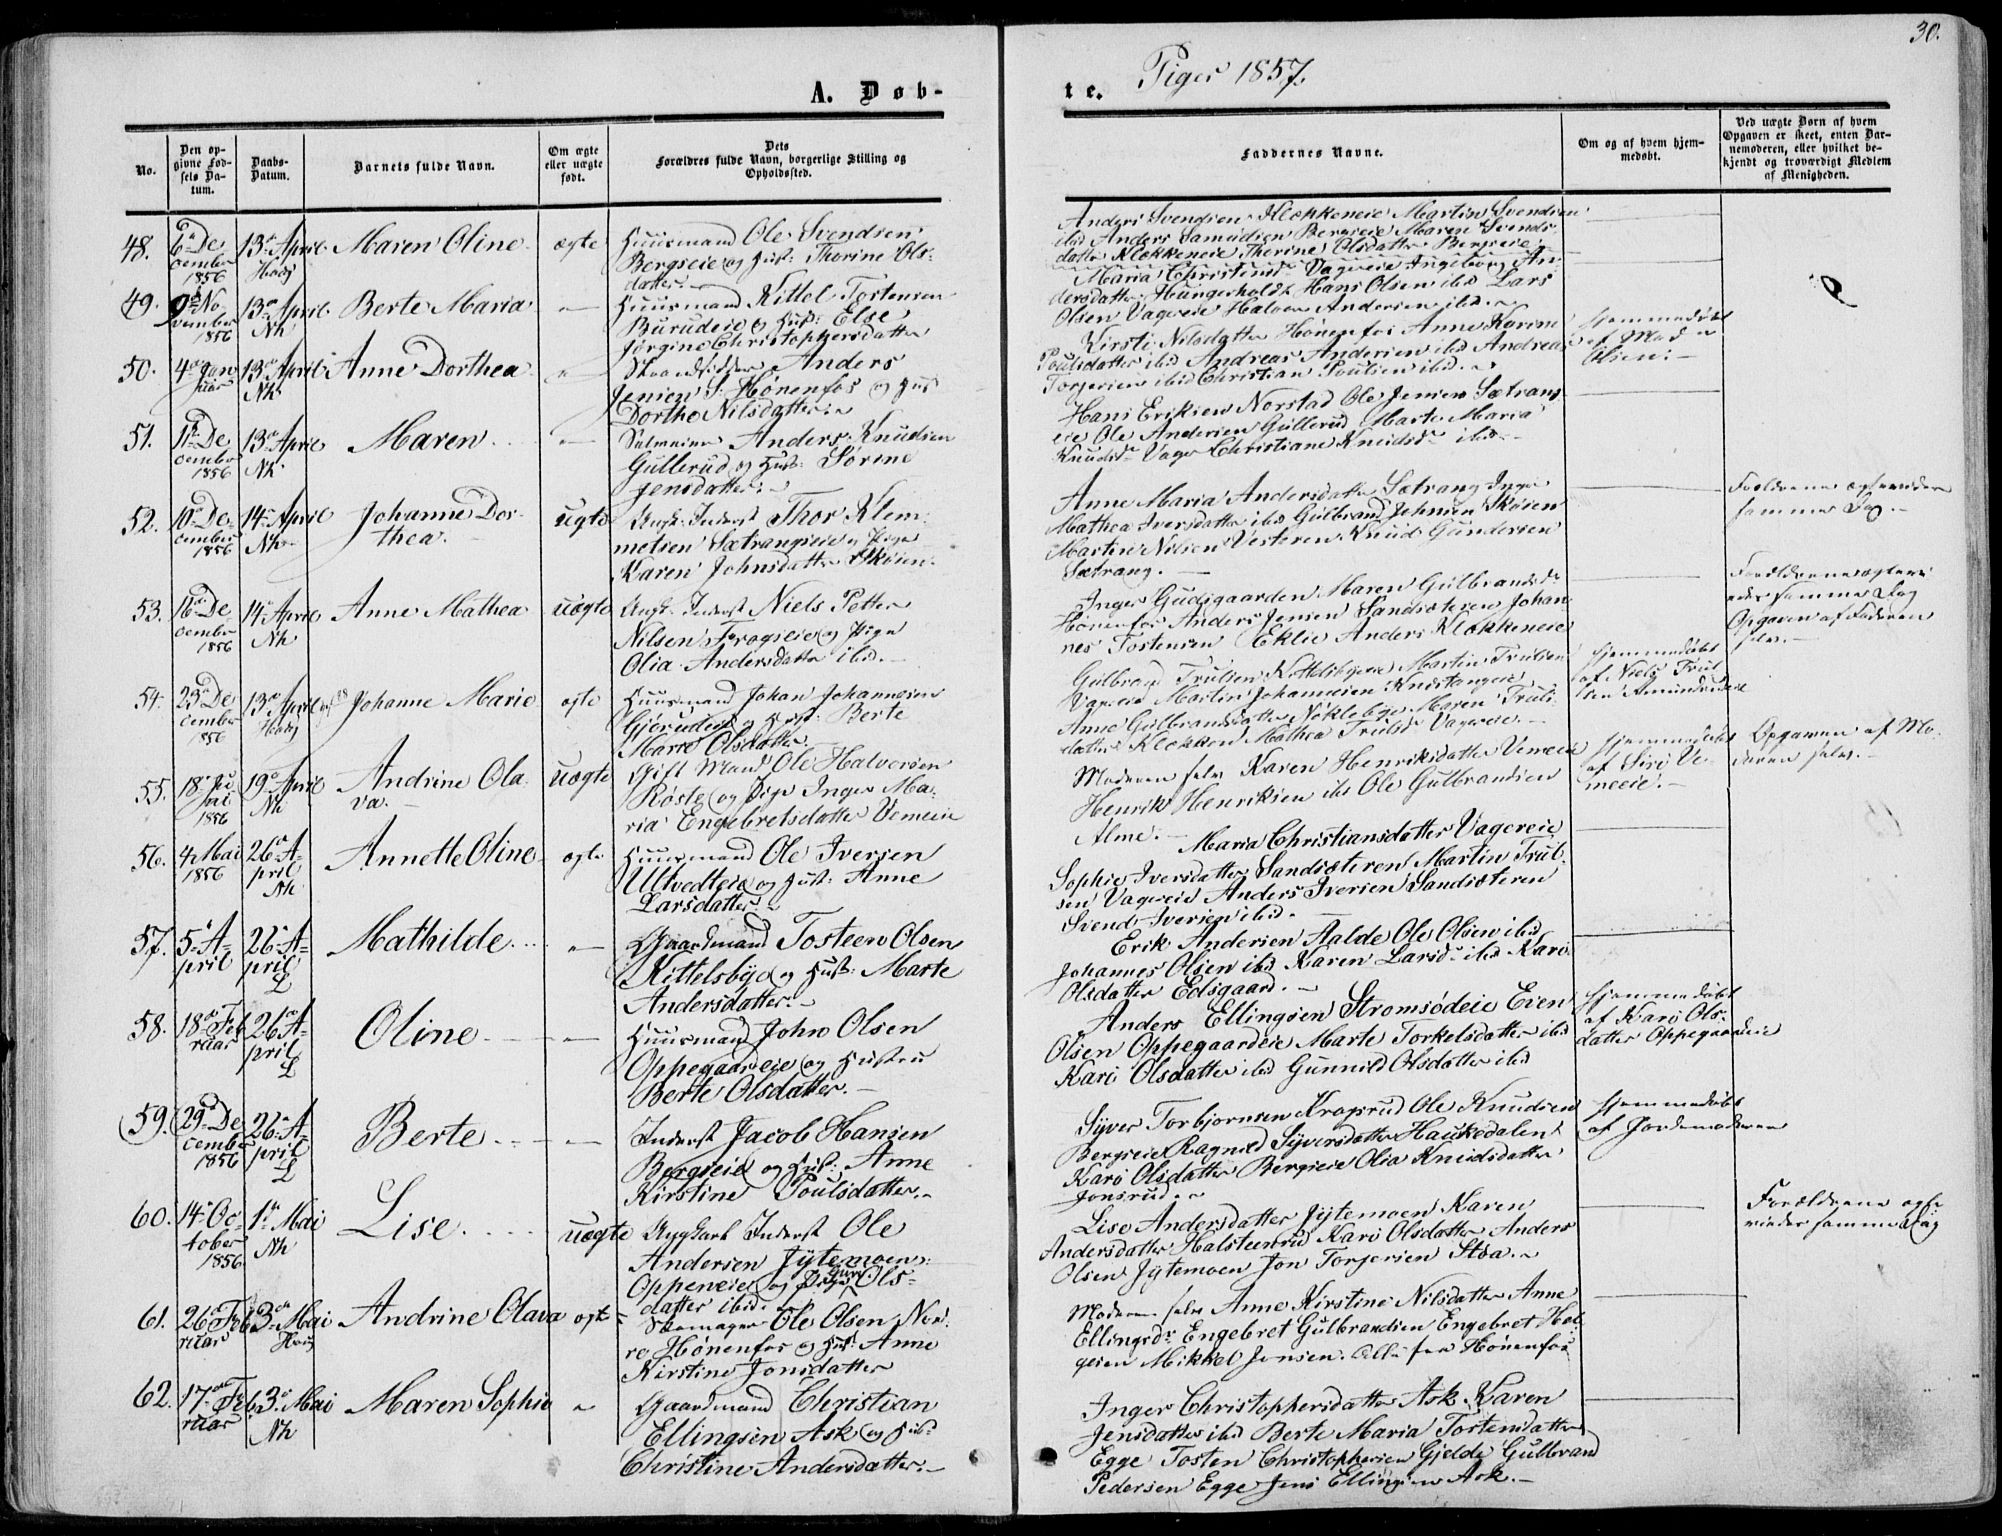 30.
A. Døb-
te. Piger 1857.
No.
Den op-
givne Fød-
sels Da-
tum.
Daabs-
Datum.
Barnets fulde Navn.
Om ægte
eller uægte
født.
Dets
Forældres fulde Navn, borgerlige Stilling og
Opholdssted.
Faddernes Navne.
Om og af hvem hjem-
medøbt.
Ved uægte Børn af hvem
Opgaven er skeet, enten Bar-
nemoderen, eller hvilket be-
kjendt og troværdigt Medlem
af Menigheden.
48. 6te De
cember
1856
13de April
Maren Oline
ægte
Huusmand Ole Svendsen
Bergseie og Hust: Thorine Ols-
datter.
Anders Svendsen Klækkeneie Martin Svendsen
ibid Anders Samuelsen Bergseie Maren Svends-
datter Klækkeneie Thorine Olsdatter Bergseie
49. 9de No
vember
1856
13de April
Nh
Berte Maria
Huusmand Kittel Tostensen
Burudeie og Hust: Else
Jørgine Christophersdatter
Maria Christensd Vagereie Ingeborg An-
dersdatter Hungerholdt Hans Olsen ibid Lars
Olsen Vagereie Halvor Andersen ibid.
50. 4de Jan
uar
13de April
Nh
Anne Dorthea
Strandsidder Anders
Jensen S. Hønenfos og Hust
Dorthe Nilsdatter
Kirsti Nilsdatter Hønenfos Anne Karine
Poulsdatter ibid Andreas Andersen ibid Andreas
Torjersen ibid Christian Poulsen ibid.
Hjemmedøbt
af Mad
Olsen.
51. 11te De
cember
1856
13de April
Nh
Maren
Anders Knudsen
Gullerud og Hust: Sørine
Jensdatter.
Hans Eriksen Norstad Ole Jensen Sætrang
eie Ole Andersen Gullerud Marte Maria
Knudsd Vager Christiane Knudsd ibid.
52. 10de De-
cember
1856
14de April
Nh
Johanne Dor-
thea.
uægte
Ungk: Inderst Thor Klem-
metsen Sætrangseie og Pige
Karen Johnsdatter Skøien.
Anne Maria Andersdatter Sætrang Inger
Mathea Iversdatter ibid Gulbrand Johnsen Skøien
Martin Nilsen Vesteren Knud Gundersen
Sætrang.
Forældrene ægteviede
samme Dag.
53. 16de De
cember
1856
14de April
Nh
Anne Mathea
uægte
Ungk: Inderst Niels Petter
Nilsen Fragseie og Pige
Olia Andersdatter ibid.
Inger Gudsgaarden Maren Gulbrandsd
Hønenfos Anders Jensen Sandsæteren Johan
nes Tostensen Eklie Anders Klækkeneie
Forældrene ægtevi
ede samme Dag
Opgaven af Faderen
selv.
54. 23de De
cember
1856
13de April
Johanne Marie
ægte
Huusmand Johan Johannesen
Gjørudeie og Hust: Berte
Marie Olsdatter.
Gulbrand Trulsen Kittelsbyeie Martin Trulsen
Vagereie Martin Johannesen Knestangeie
Anne Gulbrandsdatter Nøklebye Maren Truls-
datter Klækken Mathea Trulsd Vagereie.
Hjemmedøbt
af Niels Trul
sen Amundrudeie
55. 18de Ju
ni
1856
19de April
Nh
Andrine Ola-
va.
uægte
Gift Mand Ole Halvorsen
Røste og Pige Inger Ma-
ria Engebretsdatter Vemeie
Moderen selv Karen Henriksdatter Vemeeie
Henrik Henriksen ibid Ole Gulbrandsen
Alme.
Hjemmedøbt
af Siri Ve-
meeie.
Opgaven af Mo-
deren selv.
56. 4 Mai
1856
26de A-
pril
Nh
Annette Oline
ægte
Huusmand Ole Iversen
Ultvedteie og Hust: Anne
Larsdatter.
Maria Christiansdatter Vagereie
Sophie Iversdatter Sandsæteren Martin Trul-
sen Vagereie Anders Iversen Sandsæteren
Svend Iversen ibid.
57. 5te A-
pril
26de A-
pril
L
Mathilde
Gaardmand Tosteen Olsen
Kittelsbye og Hust: Marte
Andersdatter.
Erik Andersen Aalde Ole Olsen ibid
Johannes Olsen ibid Karen Larsd ibid Kari
Olsdatter Eolsgaard.
58. 18de Feb
ruar
26de A-
pril
L
Oline
Huusmand John Olsen
Oppegaardeie og Hustru
Berte Olsdatter.
Anders Ellingsen Stromsødeie Even
Olsen Oppegaardeie Marte Torkelsdatter ibid
Kari Olsdatter ibid Gunnild Olsdatter ibid
Hjemmedøbt
af Kari Ols-
datter Oppegaardeie
59. 29de De
cember
1856
26de A-
pril
L
Berte
Inderst Jacob Hansen
Bergseie og Hust: Anne
Kirstine Poulsdatter.
Syver Torbjørnsen Kragsrud Ole Knudsen
Bergseie Ragnild Syversdatter Haukedalen
Kari Olsdatter Bergseie Olia Knudsdatter
Jonsrud.
Hjemmedøbt
af Jordemoderen
60. 14de Oc-
tober
1856
1ste Mai
Nh
Lise
uægte
Ungkarl Inderst Ole
Andersen Jytemoen
Oppeneie og Pige Guri Ols-
datter ibid.
Lise Andersdatter Jytemoen Karen
Andersdatter Halsteenrud Kari Olsdatter Anders
Olsen Jytemoen Jon Torjersen Stoa.
Forældrene ægte-
viede samme Dag
61. 26de Feb
ruar
3de Mai
Andrine Olava
ægte
Skomager Ole Olsen Nor-
re Hønenfos og Hust: Anne
Kirstine Jonsdatter
Moderen selv Anne Kirstine Nilsdatter Anne
Ellingsdr Engebret Gulbrandsen Engebret Hel-
gesen Mikkel Jensen. Alle fra Hønenfos
62. 17de Feb
ruar
3de Mai
Nh
Maren Sophie
Gaardmand Christian
Ellingsen Ask og Hust
Christine Andersdatter.
Inger Christophersdatter Ask Karen
Jensdatter ibid Berte Maria Tostensdatter
Egge Tosten Christophersen Gjelde Gulbrand
Pedersen Egge Jens Ellingsen Ask.